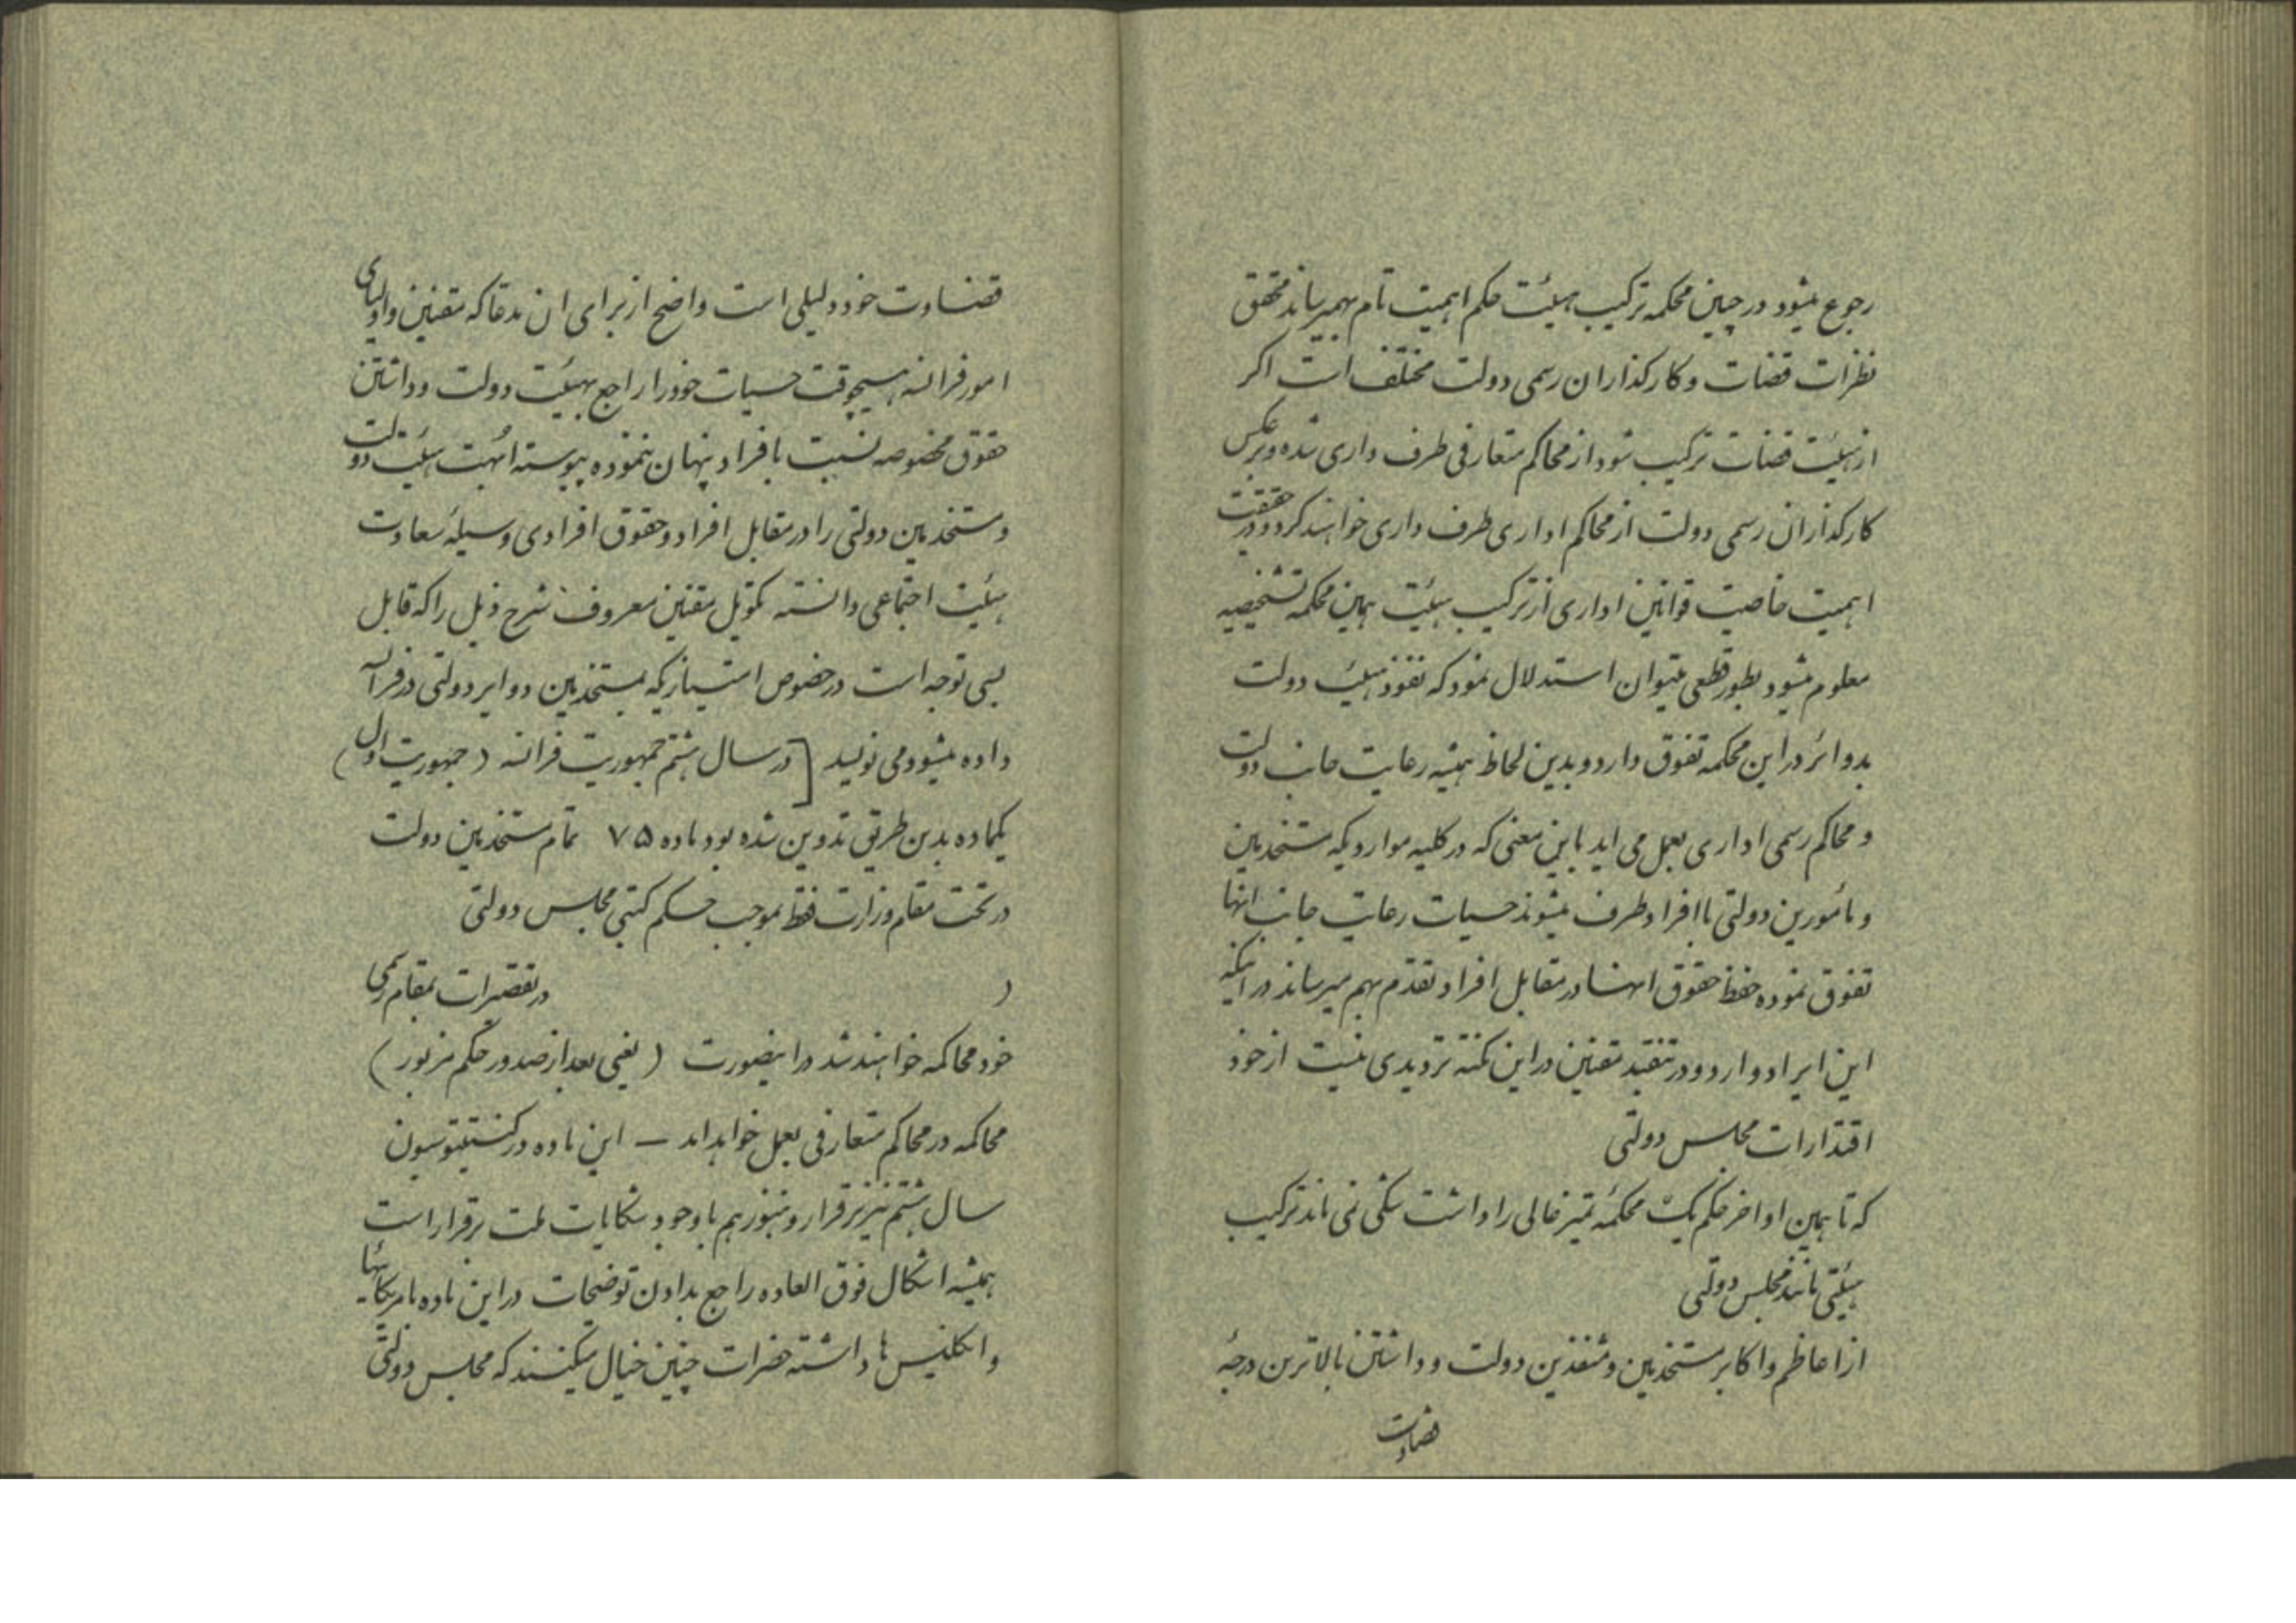 رجوع میشود در چنین محکمه ترکیب هیئت حکم اهمیت تام بهم میرساند محقق
نظرات قضات و کارکذاران رسمی دولت مختلف است اکر
از هیئت قضات ترکیب شود از محاکم متعارفی طرف داری شده و برعکس
کارکذاران رسمی دولت از محاکم اداری طرف داری خواهند کرد و در حقیقت
اهمیت خاصیت قوانین اداری از ترکیب هیئت همین محکمه تشخیصیه
معلوم میشود بطور قطعی میتوان استدلال نمود که نفوذ هیئت دولت
بدوائر در این محکمه تفوق دارد و بدین لحاظ همیشه رعایت جانب دولت
و محاکم رسمی اداری بعمل می اید باین معنی که در کلیه مواردیکه مستخدمین
و مأمورین دولتی با افراد طرف میشوند حسیات رعایت جانب انها
تفوق نموده حفظ حقوق انها در مقابل افراد تقدم بهم میرساند در اینکه
این ایراد وارد و در تنقید مقنین در این نکته تردیدی نیست از خود
اقتدارات مجلس دولتی
که تا همین اواخر حکم یک محکمهٔ تمیز عالی را داشت شکی نمی ماند ترکیب
هیئتی مانند مجلس دولتی
از اعاظم و اکابر مستخدمین و متنفذین دولت و داشتن بالاترین درجهٔ
قضاوت
قضاوت خود دلیلی است واضح از برای ان مدعا که مقنین و اولیای
امور فرانسه هیچوقت حسیات خود را راجع بهیئت دولت و داشتن
حقوق مخصوصه نسبت بافراد پنهان ننموده پیوسته ابهت هیئت دولت
و مستخدمین دولتی را در مقابل افراد و حقوق افرادی وسیلهٔ سعادت
هیئت اجتماعی دانسته تکویل مقنین معروف شرح ذیل را که قابل
بسی توجه است در خصوص امتیازیکه بمستخدمین دوایر دولتی در فرانسه
داده میشود می نویسد [در سال هشتم جمهوریت فرانسه (جمهوریت اول)
یکماده بدین طریق تدوین شده بود ماده ۷۵ تمام مستخدمین دولت
در تحت مقام وزارت فقط بموجب حکم کتبی مجلس دولتی
در تقصیرات بمقام رسمی
خود محاکمه خواهند شد در اینصورت (یعنی بعد از صدور حکم مزبور)
محاکمه در محاکم متعارفی بعمل خواهد امد – این ماده در کنستیتوسیون
سال هشتم نیز برقرار و هنوز هم با وجود شکایات ملت برقرار است
همیشه اشکال فوق العاده راجع بدادن توضیحات در این ماده بامریکائیها
و انگلیس ها داشته حضرات چنین خیال میکنند که مجلس دولتی